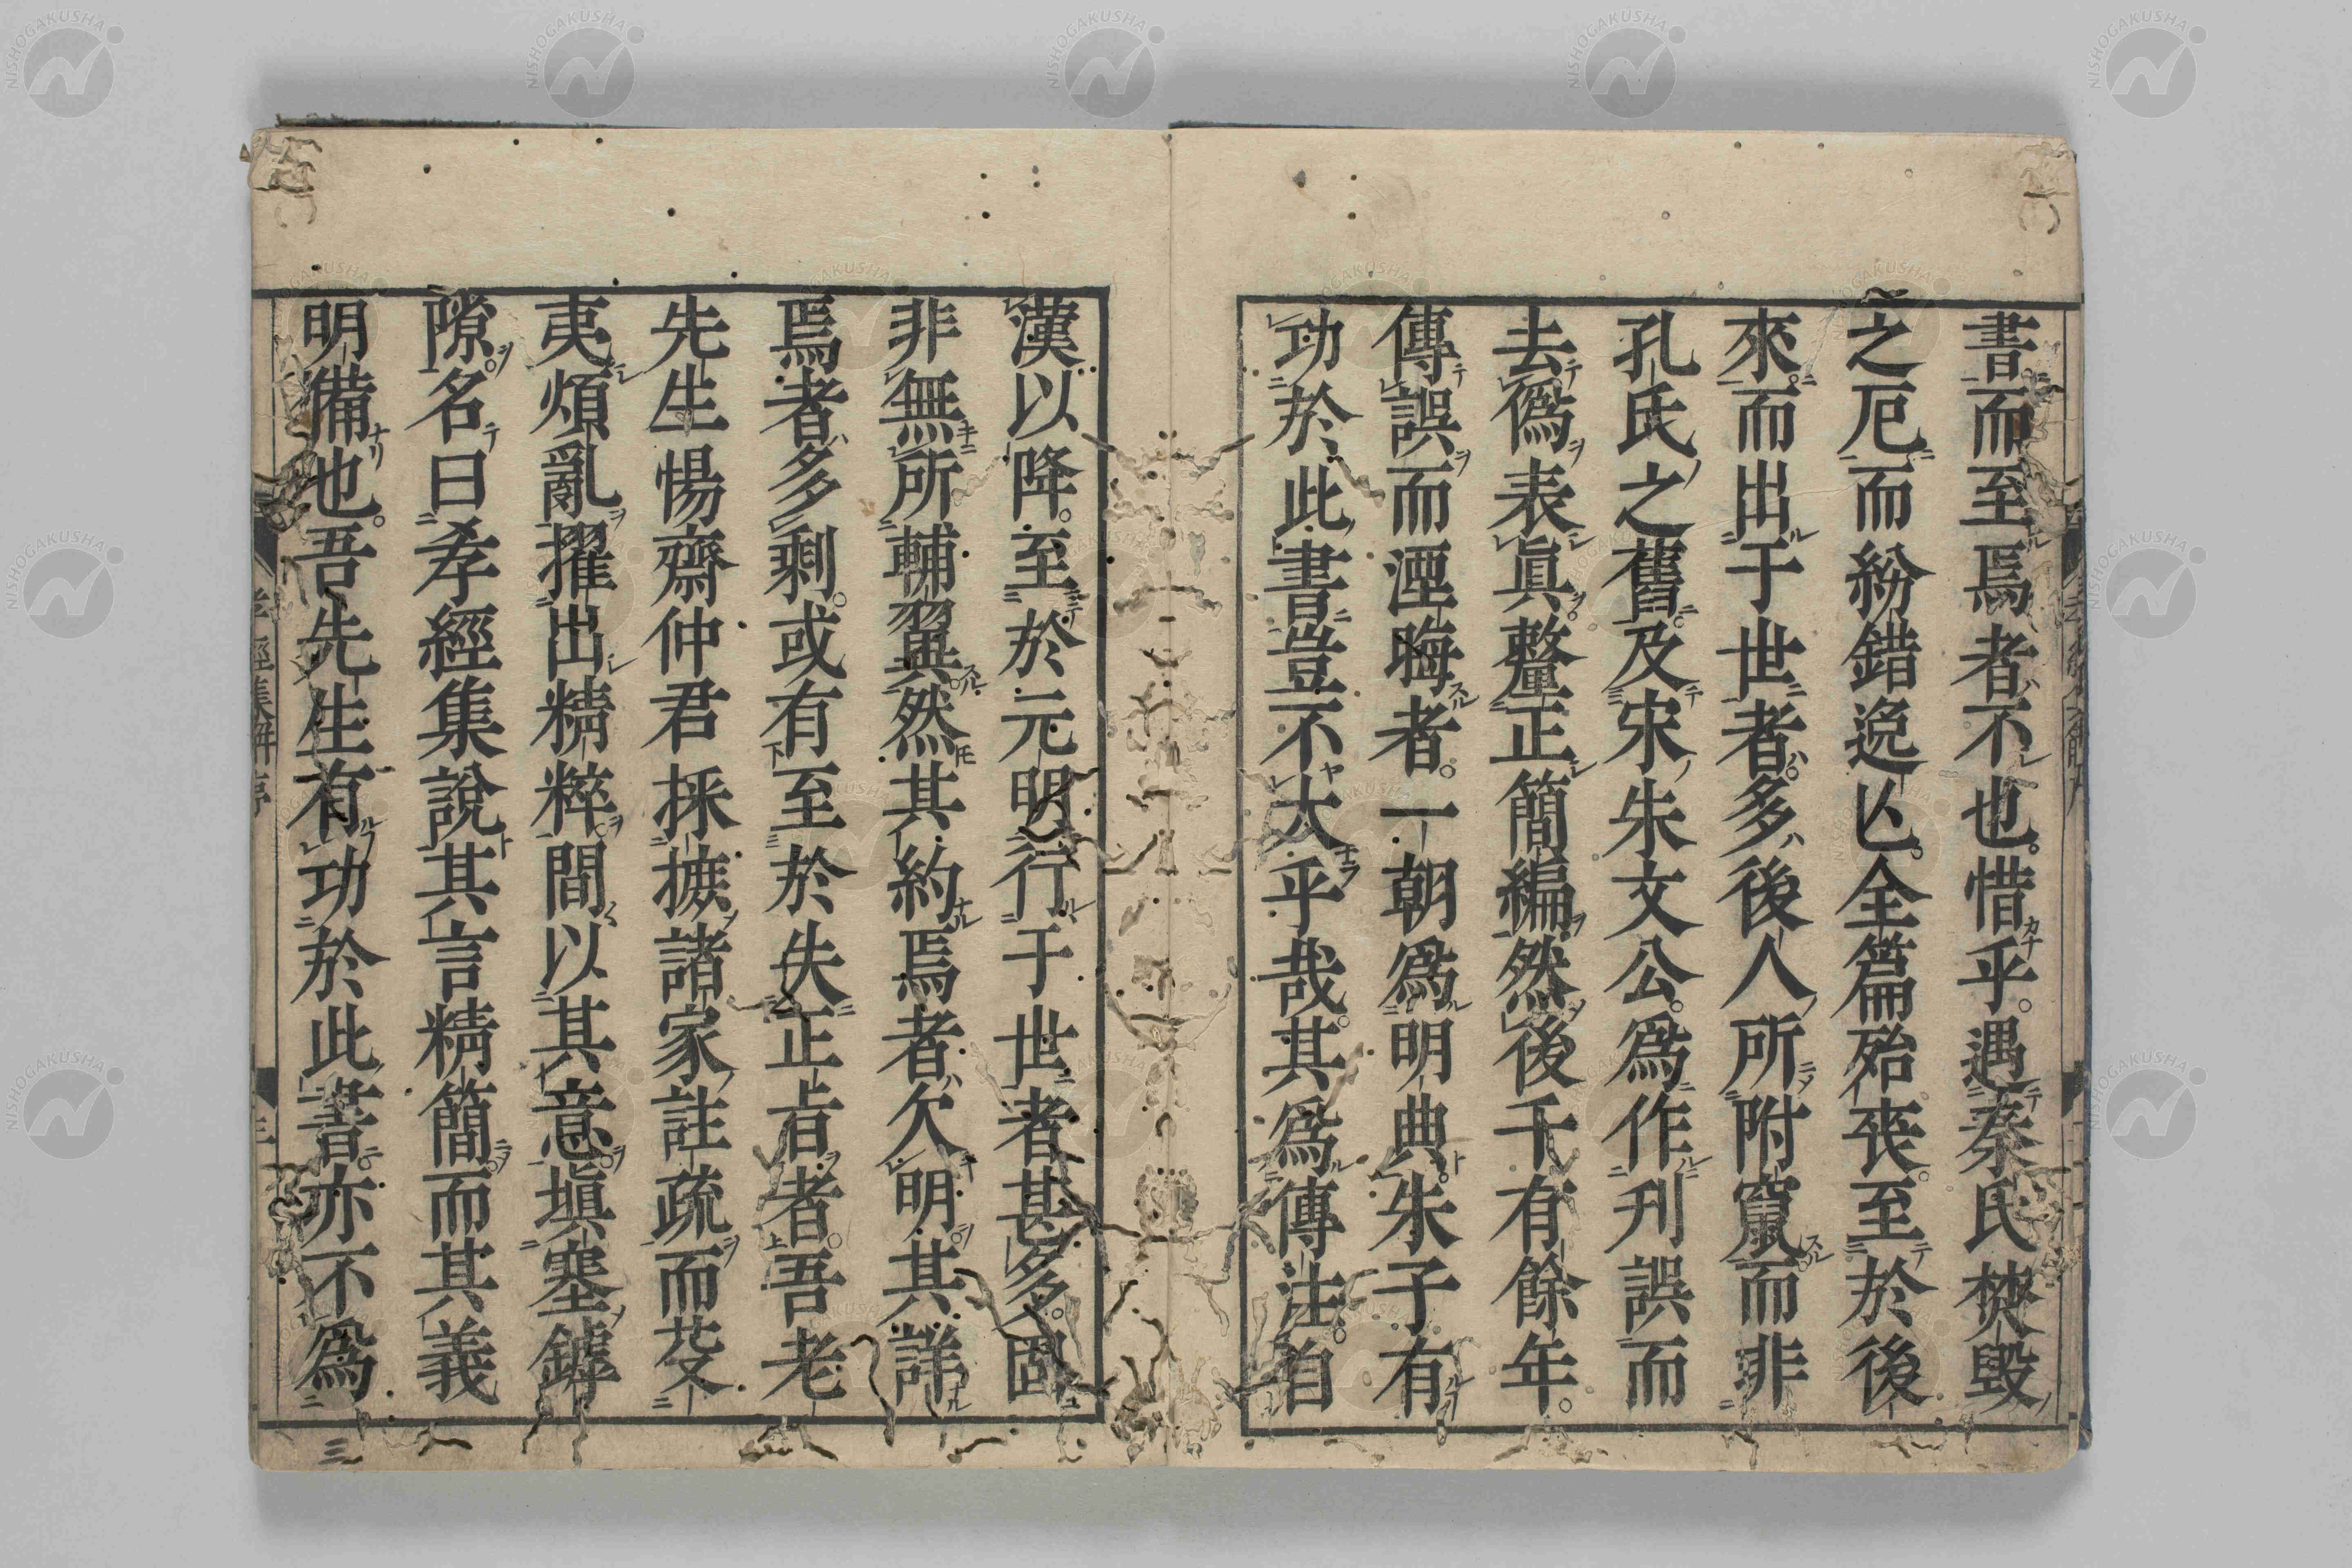 書而至焉者不也惜乎遇秦氏焚毀
之厄而紛錯逸亾全篇殆丧至於後
來而出于世者多後人所附竄而非
孔氏之舊及宋朱文公爲作刋誤而
去僞表眞釐正簡編然後千有餘年
傳誤而湮晦者一朝爲明典朱子有
功於此書豈不大乎哉其爲傳注自
漢以降至於元明行于世者甚多固
非無所輔翼然其約焉者欠明其詳
焉者多剩或有至於失正㫖者吾老
先生惕齋仲君採摭諸家註疏而芟
夷煩亂擢出精粹間以其意塡塞罅
隙名曰孝經集說其言精簡而其義
明備也吾先生有功於此書亦不爲
孝經集解序
三